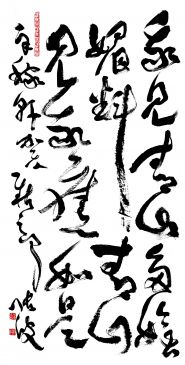 我見青山多嫵
媚料青山
見我應如是
辛稼軒賀新郎